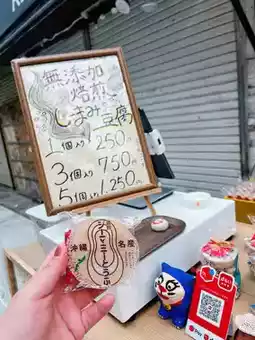 無添加
焙煎
じーまみ豆腐
1個入り 250
3個入り 750
5個入り 1,250
沖縄
名産
ジーマミーとうふ
Pay